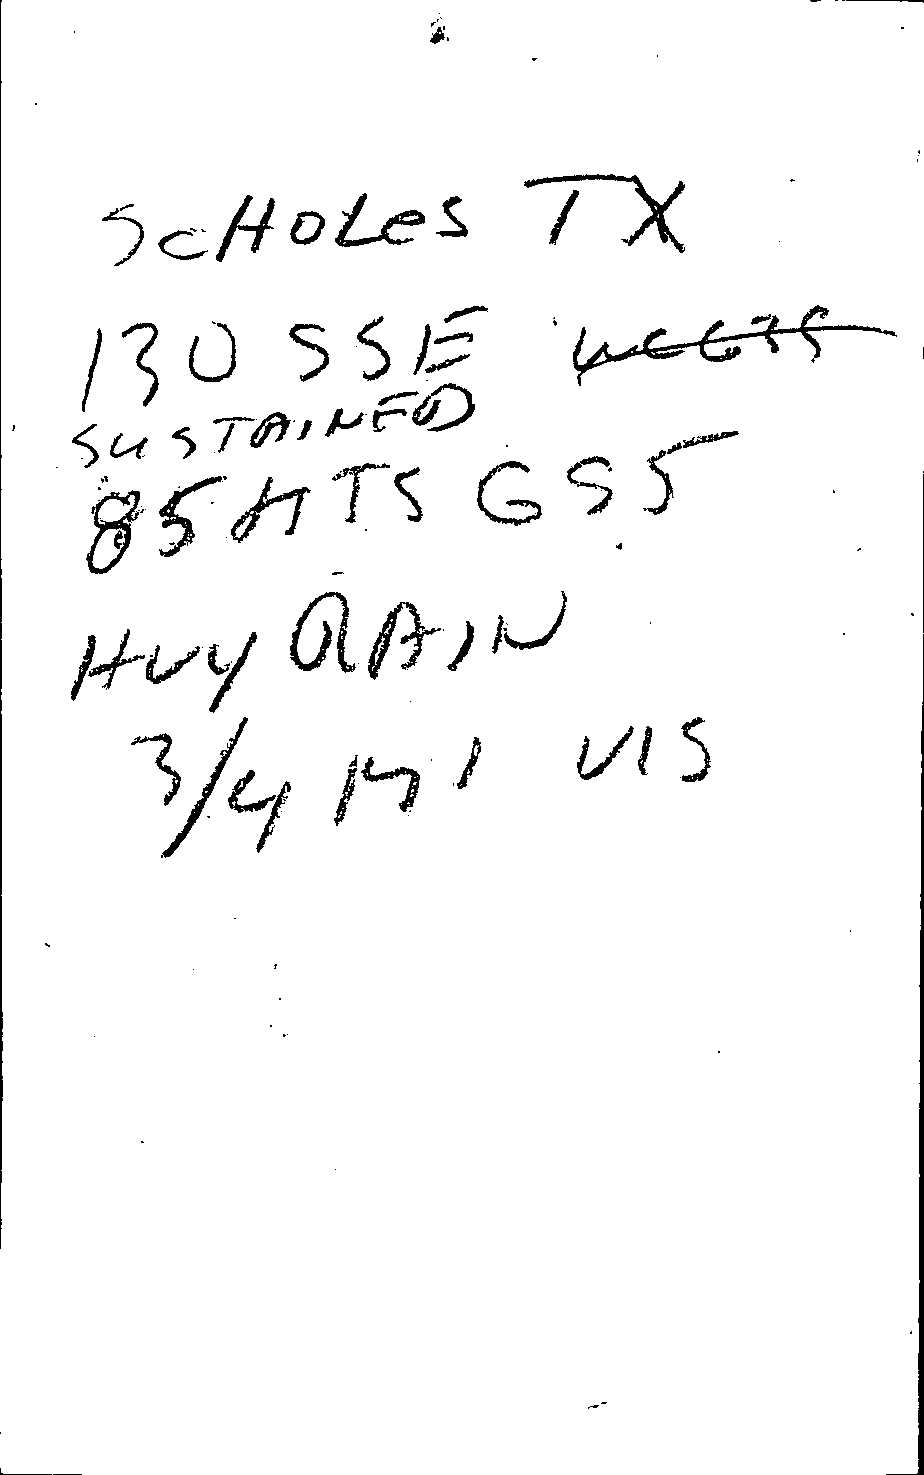 SCHOLES TX
130 SSE
SUSTAINED
85 KTS G 95
HVY RAIN
3/4 MI VIS